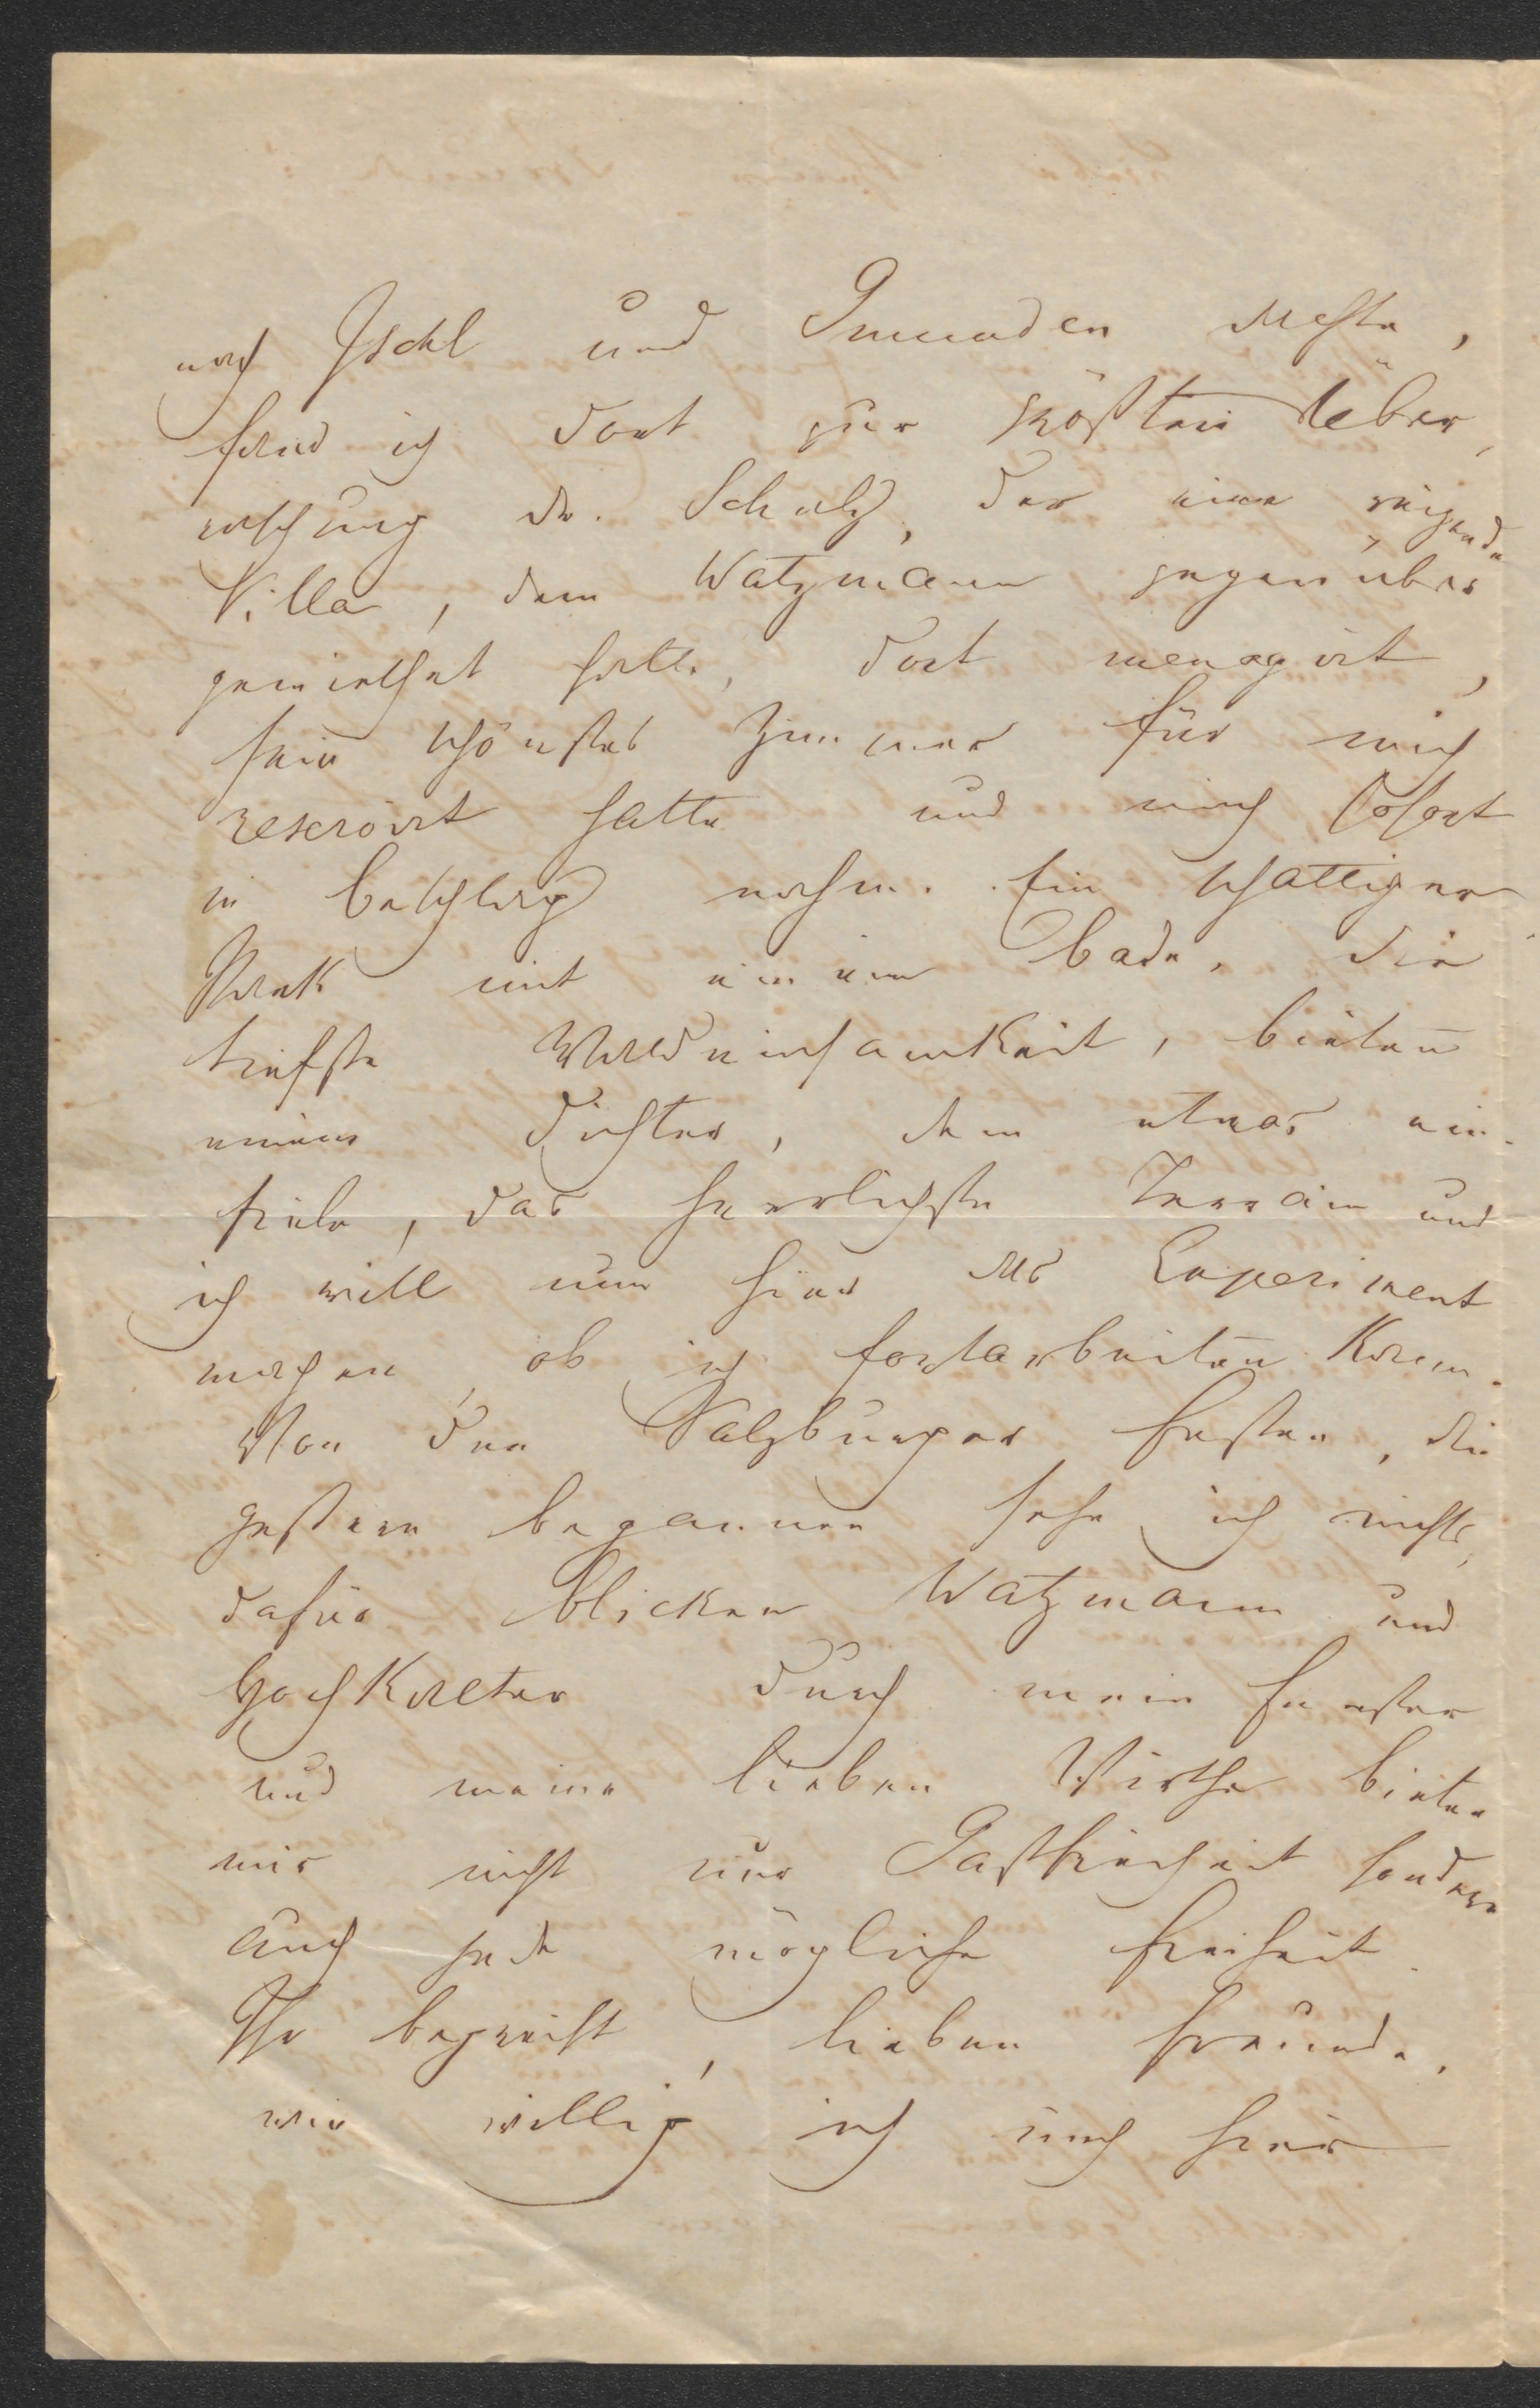 nach Ischl und Gmunden dachte,
fand ich dort zur größten Ueber,
raschung Dr. Scholz, der eine reizende
Villa, dem Watzmann gegenüber
gemiethet hatte, dort menagirt,
sein schönstes Zimmer für mich
reservirt hatte und mich sofort
in Beschlag nahm. Ein schattiger
Park mit einem Bade, die
tiefste Waldeinsamkeit, bieten
einem Dichter, dem etwas ein-
fiele, das herrlichste Terrain und
ich will nun hier das Experiment
machen, ob ich fortarbeiten kann.
Von den Salzburger Festen, die
gestern begannen sehe ich nichts,
dafür blicken Watzmann und
Hochkalter durch mein Fenster
und meine lieben Wirthe bieten
mir nicht nur Gastfreiheit sondern
auch jede mögliche Freiheit.
Ihr begreift, lieben Freunde,
wie willig ich mich hier